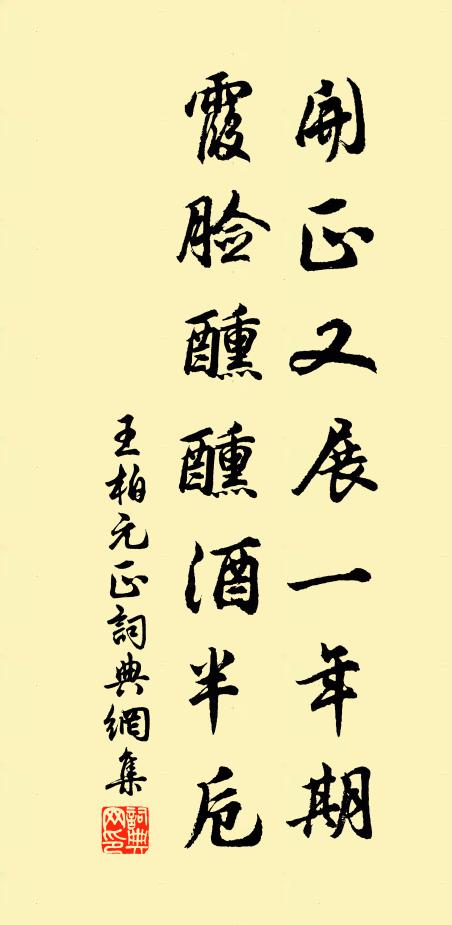 開正又展一年期
霞臉醺醺酒半卮
王柏元正詞典網集
詞典网印